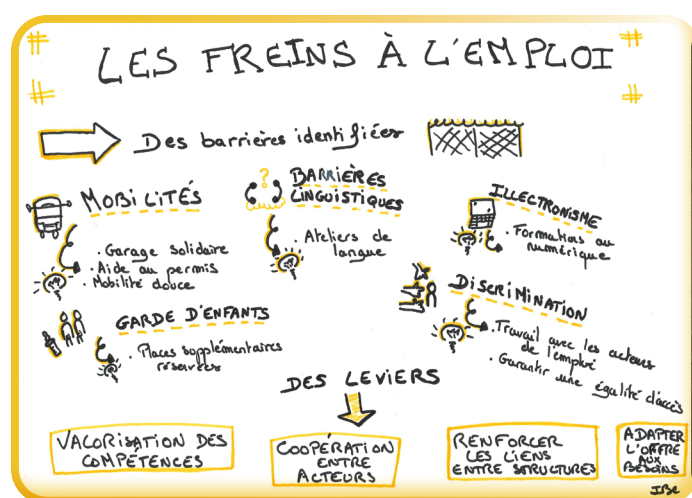 LES FREINS À L'EMPLOI
Des barrières identifiées
MOBILITÉS
. Garage solidaire
. Aide au permis
. Mobilité douce
?
BARRIÈRES
LINGUISTIQUES
. Ateliers de
langue
ILLECTRONISME
. Formations au
numérique
GARDE D'ENFANTS
. Places supplémentaires
réservées
DISCRIMINATION
. Travail avec les acteurs
de l'emploi
. Garantir une égalité d'accès
DES LEVIERS
VALORISATION DES
COMPÉTENCES
COOPÉRATION
ENTRE
ACTEURS
RENFORCER
LES LIENS
ENTRE STRUCTURES
ADAPTER
L'OFFRE
AUX
BESOINS
IBe